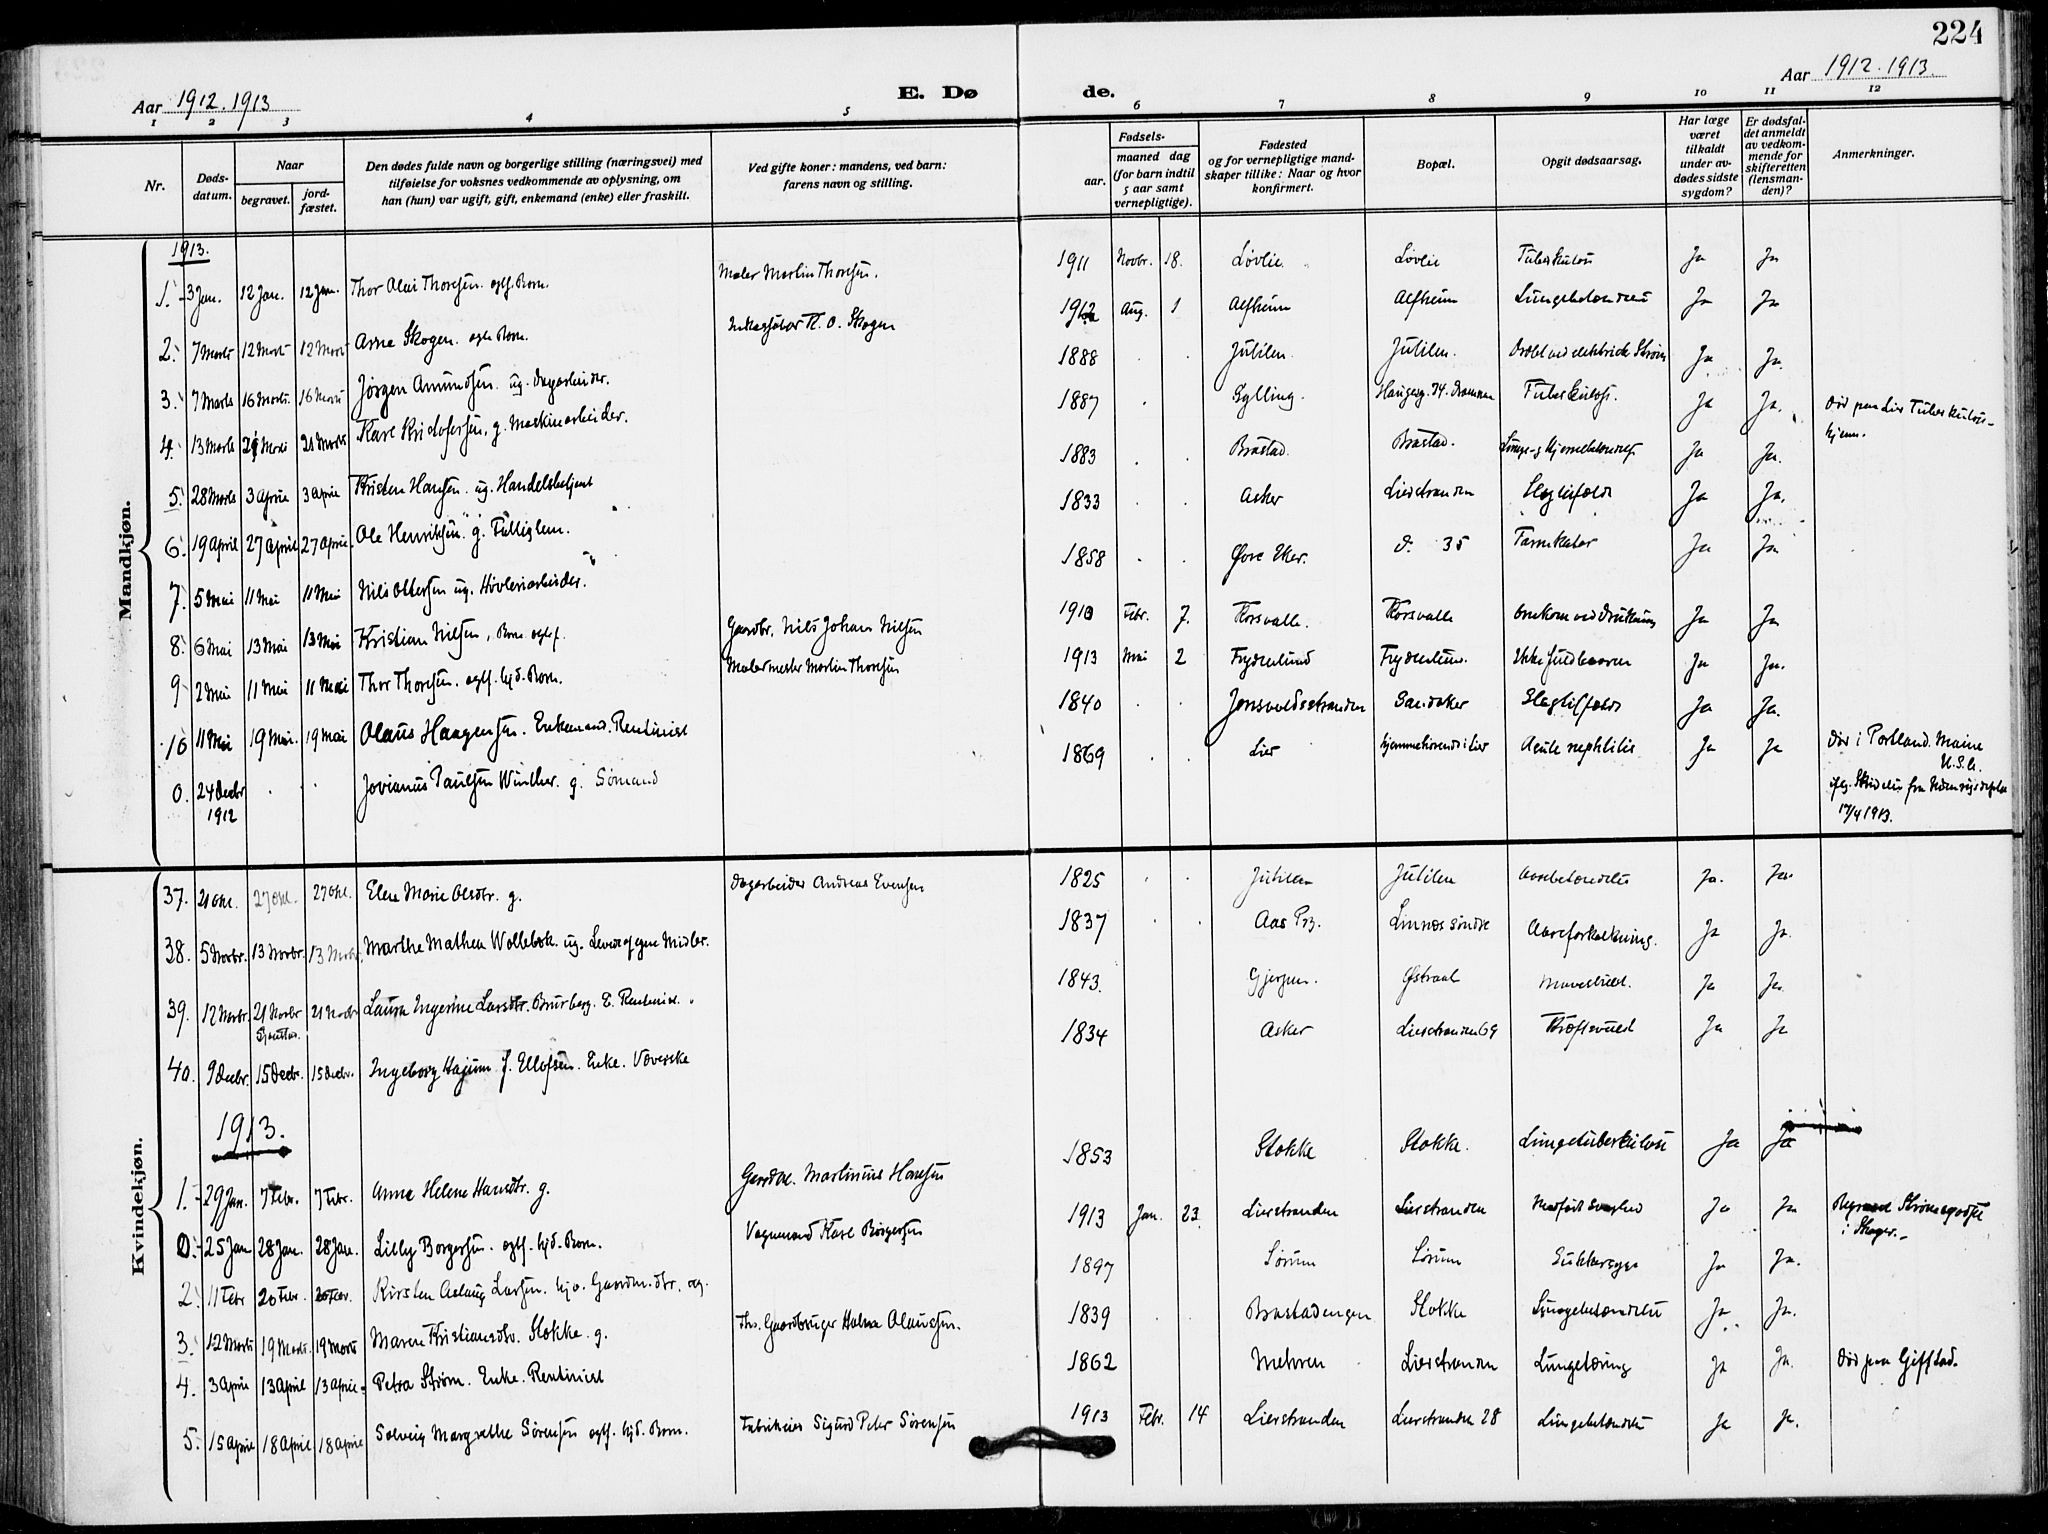 224
Aar 1912. 1913
E. Dø
de.
Aar 1912. 1913.
1 2 3 4 5 6 7 8 9 10 11 12
Nr.
Døds-
datum.
Naar
begravet.
jord-
fæstet.
Den dødes fulde navn og borgerlige stilling (næringsvei) med
tilføielse for voksnes vedkommende av oplysning, om
han (hun) var ugift, gift, enkemand (enke) eller fraskilt.
Ved gifte koner: mandens, ved barn:
farens navn og stilling.
Fødsels-
aar.
maaned dag
(for barn indtil
5 aar samt
vernepligtige).
Fødested
og for vernepligtige mand-
skaper tillike: Naar og hvor
konfirmert.
Bopæl.
Opgit dødsaarsag.
Har læge
været
tilkaldt
under av-
dødes sidste
sygdom?
Er dødsfal-
det anmeldt
av vedkom-
mende for
skifteretten
(lensman-
den)?
Anmerkninger.
Mandkjøn.
1913.
1. 3 Jan. 12 Jan. 12 Jan. Thor Olai Thoresen. egtf. Barn. Maler Martin Thoresen. 1911 Novbr. 18. Løvlie Løvlie Tuberkulose Ja Ja
2. 7 Marts 12 Marts 12 Marts Arne Skogen. egtf. Barn. O. Skogen 1912 Aug. 1 Alfheim Alfheim Lungebetændelse Ja Ja
3. 7 Marts 16 Marts 16 Marts Jørgen Amundsen. ug. Dagarbeider. 1888 Jutilen. Jutilen. Dræbt ved elektrisk Strøm Ja Ja.
4. 13 Marts 21 Marts 21 Marts Karl Kristofersen, g. Maskinarbeider. 1887 Gylling. Haugesg. 74. Drammen Tuberkulose. Ja Ja. Død paa Lier Tuberkulose-
hjem.
5. 28 Marts 3 April 3 April Kristen Hansen. ug. Handelsbetjent 1883 Brastad. Brastad. Lunge- og Hjernebetændelse Ja Ja.
6. 19 April 27 April 27 April. Ole Henriksen. g. Fattiglem. 1833 Asker Lierstranden Slagtilfælde Ja Ja.
7. 5 Mai 11 Mai 11 Mai Nils Ottersen ug. Høvleriarbeider. 1858 Øvre Eker. d. 35 Tarmkatar Ja Ja
8. 6 Mai 13 Mai 13 Mai Kristian Nilsen, Barn egtf. Gaardbr. Nils Johan Nilsen 1910 Febr. 7. Korsvalle. Korsvalle Omkom ved Drukning Ja Ja
9 2 Mai 11 Mai 11 Mai Thor Thoresen. egtf. hjd. Barn. Malermester Martin Thoresen 1913 Mai 2 Frydenlund Frydenlund. Ikke fuldbaaren Ja Ja.
10 11 Mai 19 Mai. 19 Mai Olaus Haagensen. Enkemand. Rentinist 1840 Jensvoldsstranden Sandaker Slagtilfælde Ja Ja.
0. 24 Decbr
1912 Jovianus Paulsen Winther. g. Sømand 1869 Lier Hjemmehørende i Lier Acute nephtilis Ja Ja Død i Portland. Maine
U.S.A.
fra
17/4 1913.
Kvindekjøn.
37. 21 Okt. 27 Okt. 27 Okt. Elen Marie Olsdtr. g. Dagarbeider Andreas Evensen 1825 Jutilen Jutilen Ja. Ja.
38. 5 Novbr. 13 Novbr. 13 Novbr. Marthe Mathea Wollebæk. ug. Lever af egne Midler. 1837 Aas Pr. Linnes søndre Aareforkalkning. Ja Ja.
39. 12 Novbr. 21 Novbr 21 Novbr Laura Ingerine Larsdtr. Brurberg. E. Rentenist. 1843. Gjerpen. Østraat Mavekræft. Ja Ja.
40. 9 Decbr. 15 Decbr. 15 Decbr. Ingeborg Hagum f. Ellefsen. Enke. Væverske 1834 Asker Lierstranden 69 Kræftsvulst Ja Ja
1913.
1. 29 Jan. 7 Febr. 7 Febr. Anne Helene Hansdtr. g. Gaardbr. Martinius Hansen 1853 Stokke Stokke. Lungetuberkulose Ja Ja
0. 25 Jan 28 Jan. 28 Jan. Lilly Borgersen. egtf. hjd. Barn. Vognmand Karl Borgersen 1913 Jan. 23. Lierstranden Lierstranden Medfødt Svaghed Ja Ja Begravet Strømsgodset
i Skoger.
2. 11 Febr 20 Febr. 20 Febr. Kirsten Aslaug Larsen. hjv. Gaardm. dtr. ug. 1897 Sørum Sørum Sukkersyge Ja Ja.
3. 12 Marts 19 Marts. 19 Marts Maren Kristiansdtr. Stokke. g. Fhv. Gaardbruger Halvor Olaussen. 1839 Brastadengen Stokke Lungebetændelse Ja Ja.
4. 3 April 13 April 13 April. Petra Strøm. Enke. Rentinist 1862 Mehren Lierstranden Lungetæring Ja Ja. Død paa Gifstad.
5. 15 April 18 April 18 April Solveig Margrethe Sørensen egtf. hjd. Barn. Fabrikeier Sigurd Peter Sørensen 1913 Febr. 14 Lierstranden Lierstranden 28 Lungebetændelse Ja Ja.